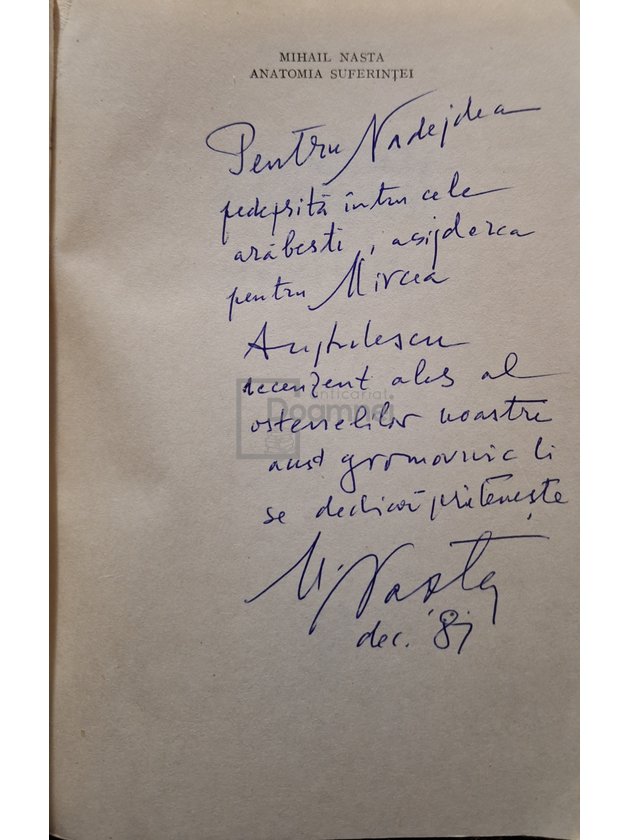 MIHAIL NASTA
ANATOMIA SUFERINȚEI
Pentru Nadejdea
pedepsită întru cele
arăbești, asijderea
pentru Mircea
Anghelescu
recenzent ales al
anticariat
Doamnei
ostenelilor noastre
acest gromovnic li
se dedică prietenește
M. Nasta
dec. '81